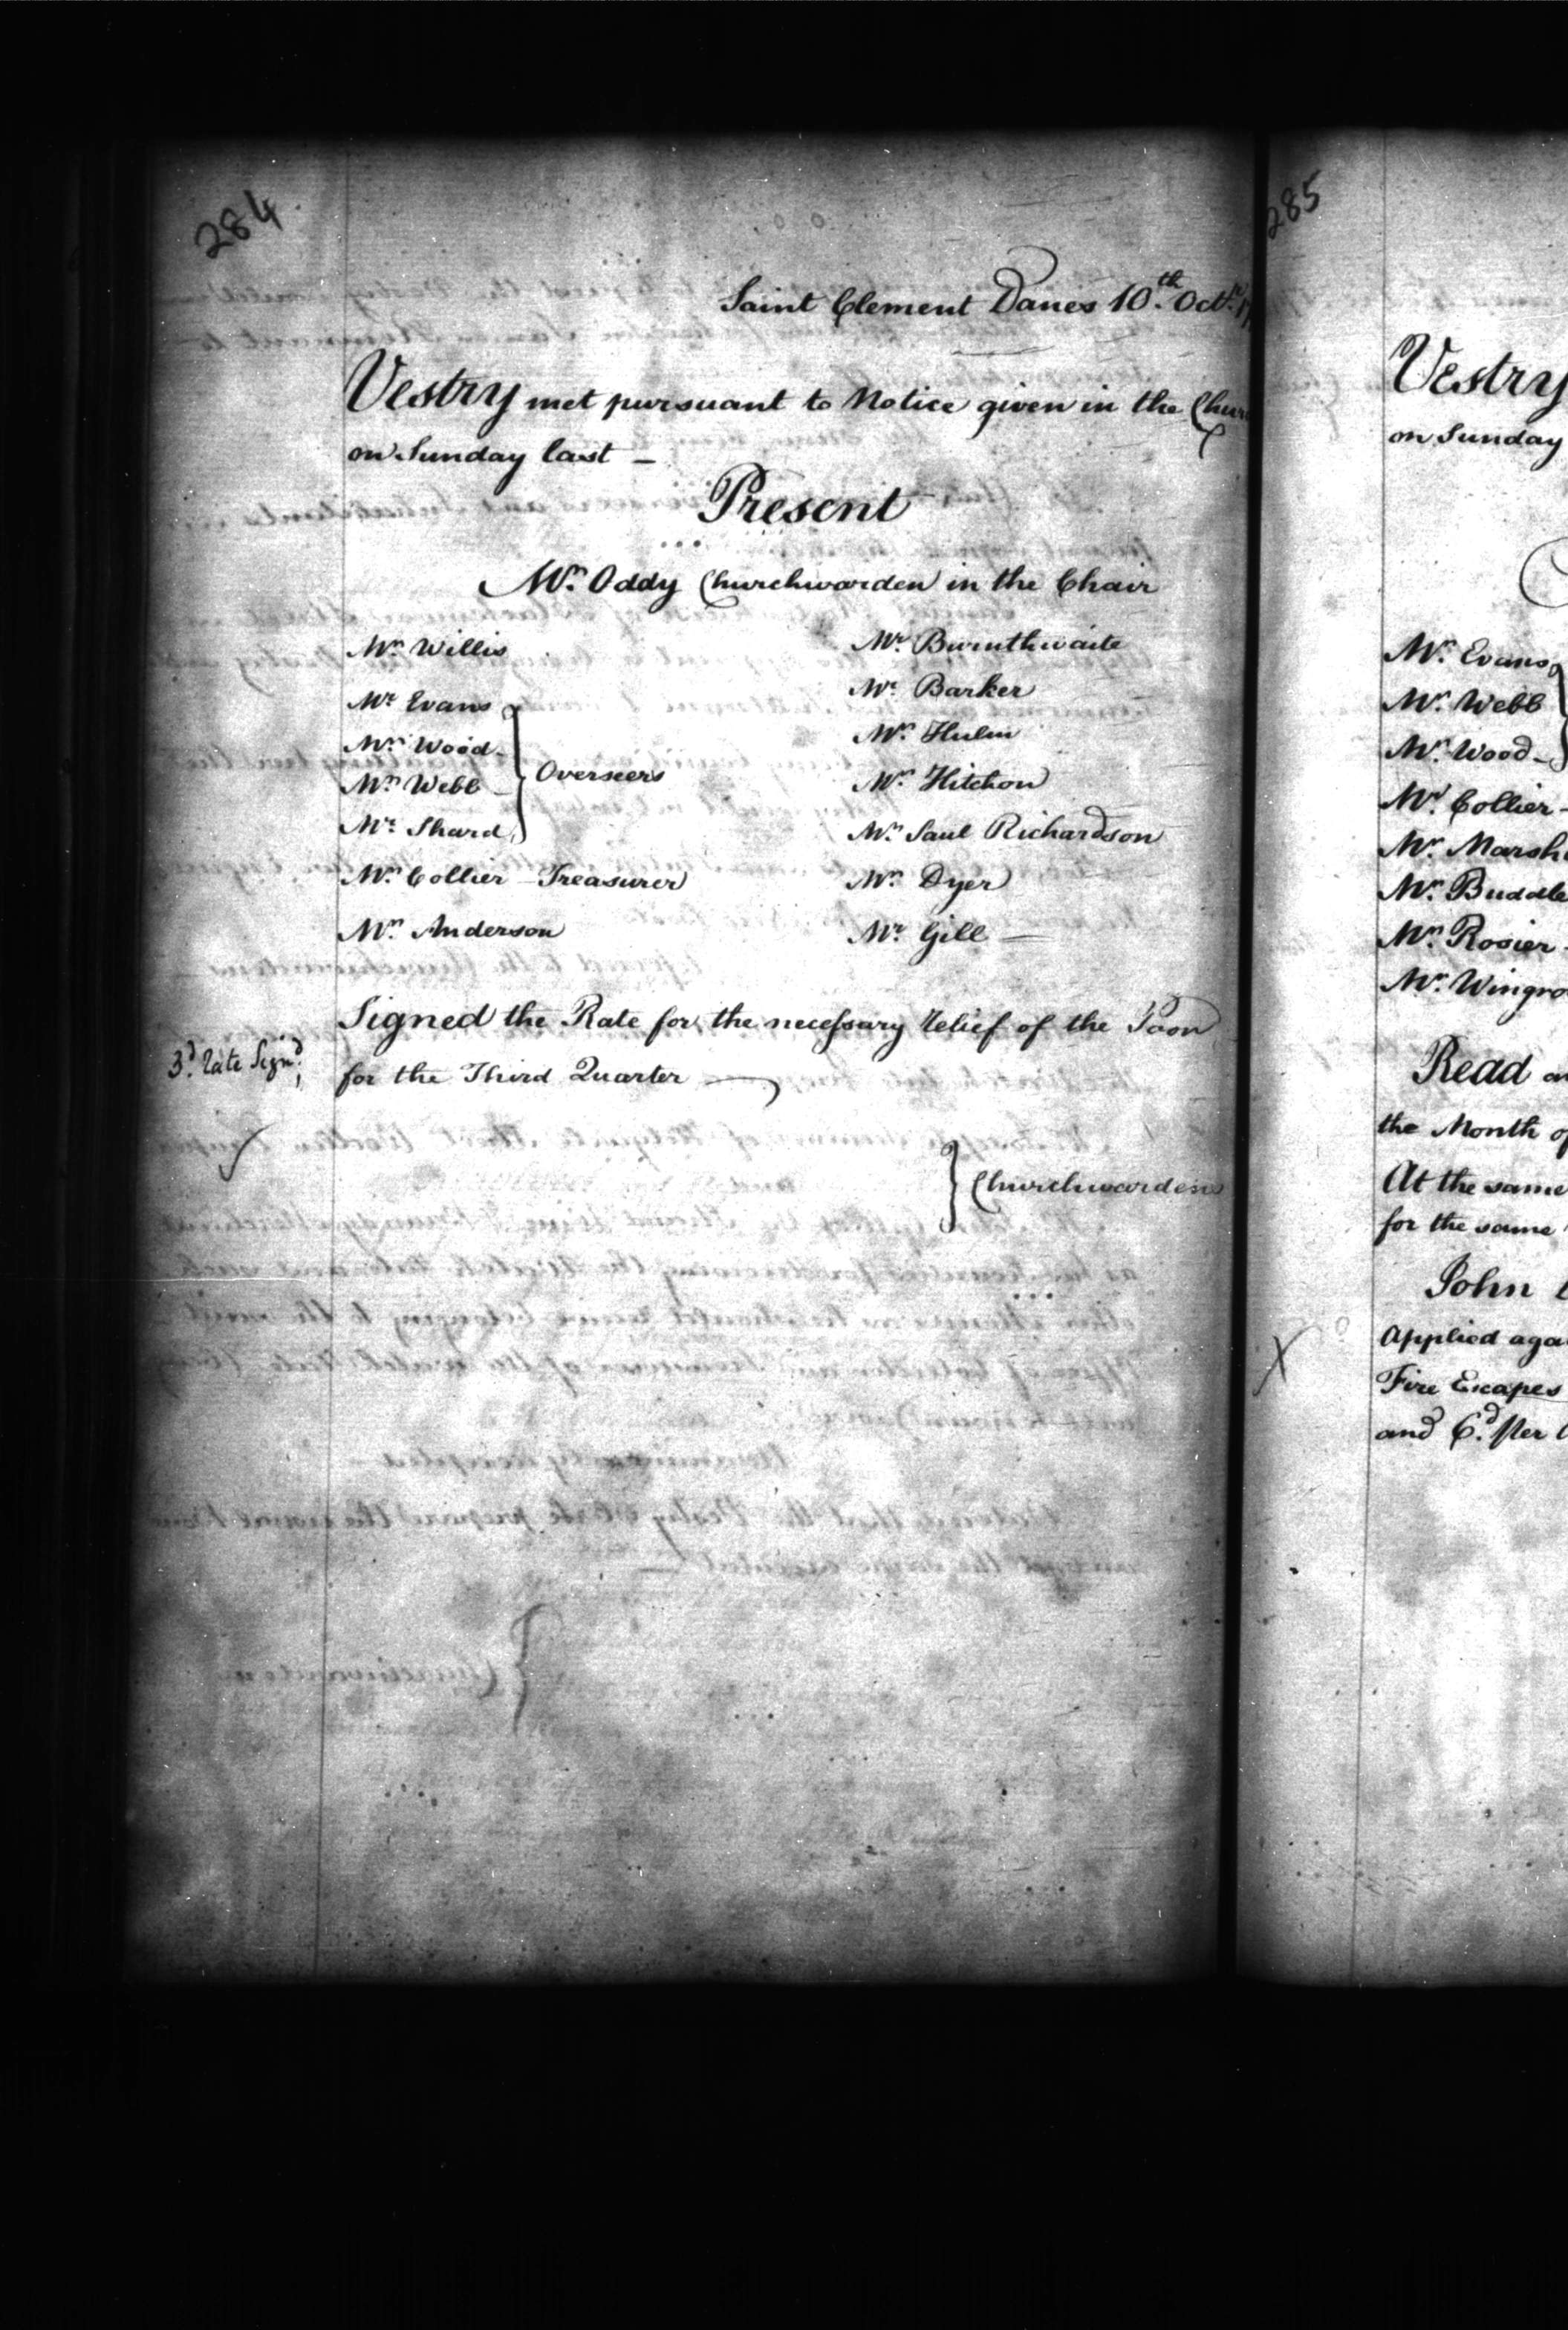 284
Saint Clement Danes 10th. Octr.
Vestry met pursuant to Notice given in the
on Sunday last —
Present
Mr. Oddy Churchwarden in the Chair
Mr. Willis
Mr. Evans
Mr. Wood
Mr. Webb
Mr. Shard
Overseers
Mr. Collier Treasurer
Mr. Anderson
Mr. Burnthwaite
Mr. Barker
Mr. Hulm
Mr. Hitchon
Mr. Saul Richardson
Mr. Dyer
Mr. Gill —
Signed the Rate for the necessary relief of the Poor
for the Third Quarter —
3d. rate Signd.
Churchwardens
285
Vestry
on Sunday
Mr. Evans
Mr. Webb
Mr. Wood
Mr. Collier
Mr. Marsh
Mr. Buddle
Mr. Rosier
Mr. Wingro
Read
the Month
At the same
for the same
John
Applied aga
Fire Escapes
and 6d. per